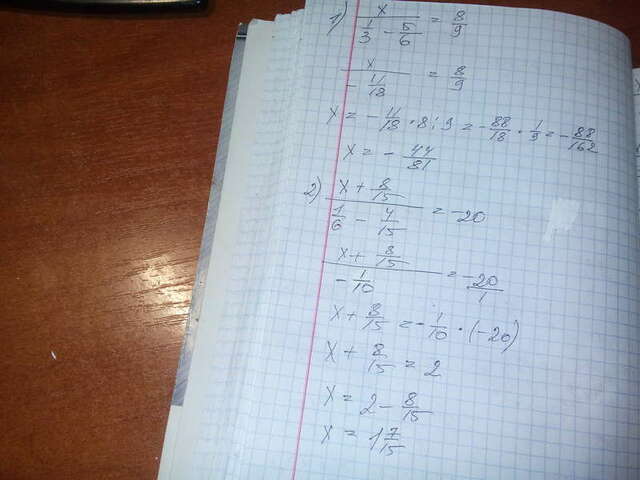 1) x / (1/3 - 5/6) = 8/9
x / (- 11/18) = 8/9
x = - 11/18 · 8 : 9 = - 88/18 · 1/9 = - 88/162
x = - 44/81
2) (x + 8/15) / (1/6 - 4/15) = -20
(x + 8/15) / (- 1/10) = - 20/1
x + 8/15 = - 1/10 · (-20)
x + 8/15 = 2
x = 2 - 8/15
x = 1 7/15